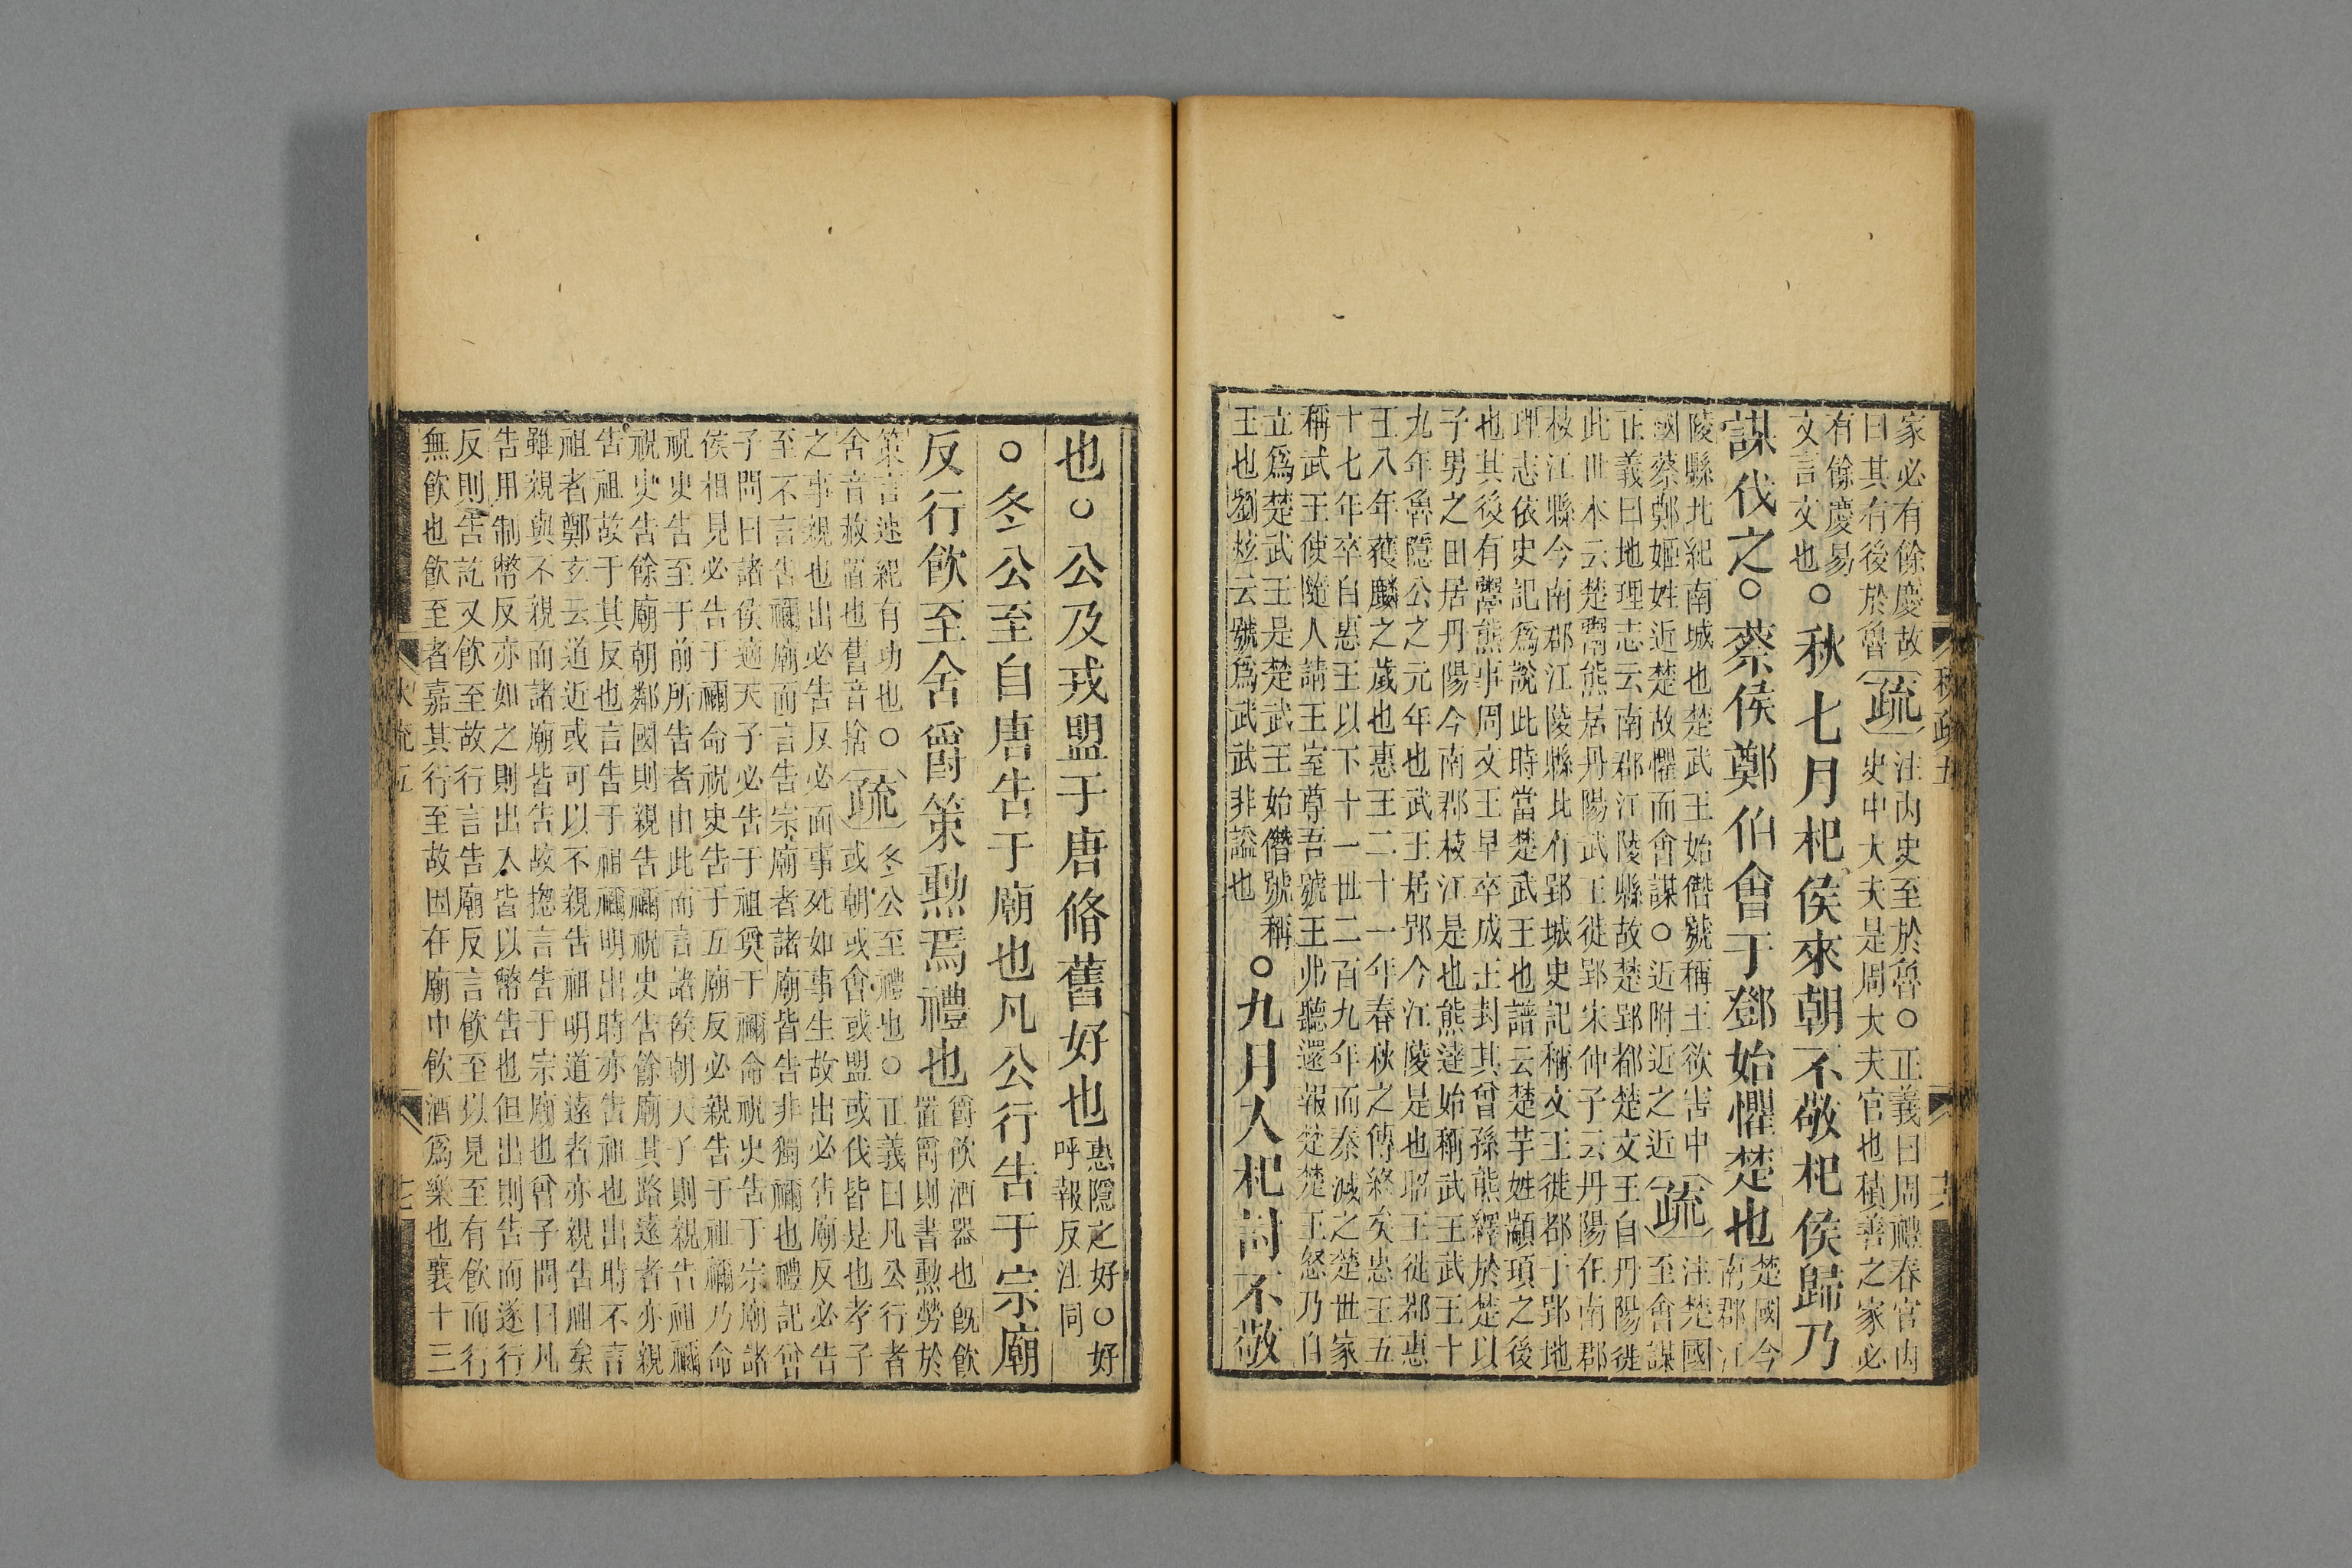 家必有餘慶故
曰其有後於魯
疏
注內史至於魯○正義曰周禮春官內
史中大夫是周大夫官也積善之家必
有餘慶易
文言文也
○秋七月杞侯來朝不敬杞侯歸乃
謀伐之○蔡侯鄭伯會于鄧始懼楚也
楚國今
南郡江
陵縣北紀南城也楚武王始僭號稱王欲害中
國蔡鄭姬姓近楚故懼而會謀○近附近之近
疏
注楚國
至會謀
正義曰地理志云南郡江陵縣故楚郢都楚文王自丹陽徙
此世本云楚鬻熊居丹陽武王徙郢宋仲子云丹陽在南郡
枝江縣今南郡江陵縣北有郢城史記稱文王徙都于郢地
理志依史記爲說此時當楚武王也譜云楚芈姓顓頊之後
也其後有鬻熊事周文王早卒成王封其曾孫熊繹於楚以
子男之田居丹陽今南郡枝江是也熊達始稱武王武王十
九年魯隱公之元年也武王居郢今江陵是也昭王徙鄀惠
王八年獲麟之歲也惠王二十一年春秋之傳終矣惠王五
十七年卒自惠王以下十一世二百九年而秦滅之楚世家
稱武王使隨人請王室尊吾號王弗聽還報楚楚王怒乃自
立爲楚武王是楚武王始僭號稱
王也劉炫云號爲武武非謚也
○九月入杞討不敬
也○公及戎盟于唐脩舊好也
惠隱之好○好
呼報反注同
○冬公至自唐告于廟也凡公行告于宗廟
反行飲至舍爵策勳焉禮也
爵飲酒器也旣飲
置爵則書勳勞於
策言速紀有功也○
舍音赦置也舊音捨
疏
冬公至禮也○正義曰凡公行者
或朝或會或盟或伐皆是也孝子
之事親也出必告反必面事死如事生故出必告廟反必告
至不言告禰廟而言告宗廟者諸廟皆告非獨禰也禮記曾
子問曰諸侯適天子必告于祖奠于禰命祝史告于宗廟諸
侯相見必告于禰命祝史告于五廟反必親告于祖禰乃命
祝史告至于前所告者由此而言諸侯朝天子則親告祖禰
祝史告餘廟朝鄰國則親告禰祝史告餘廟其路遠者亦親
告祖故于其反也言告于祖禰明出時亦告祖也出時不言
祖者鄭玄云道近或可以不親告祖明道遠者亦親告祖矣
雖親與不親而諸廟皆告故揔言告于宗廟也曾子問曰凡
告用制幣反亦如之則出入皆以幣告也但出則告而遂行
反則告訖又飲至故行言告廟反言飲至以見至有飲而行
無飲也飲至者嘉其行至故因在廟中飲酒爲樂也襄十三